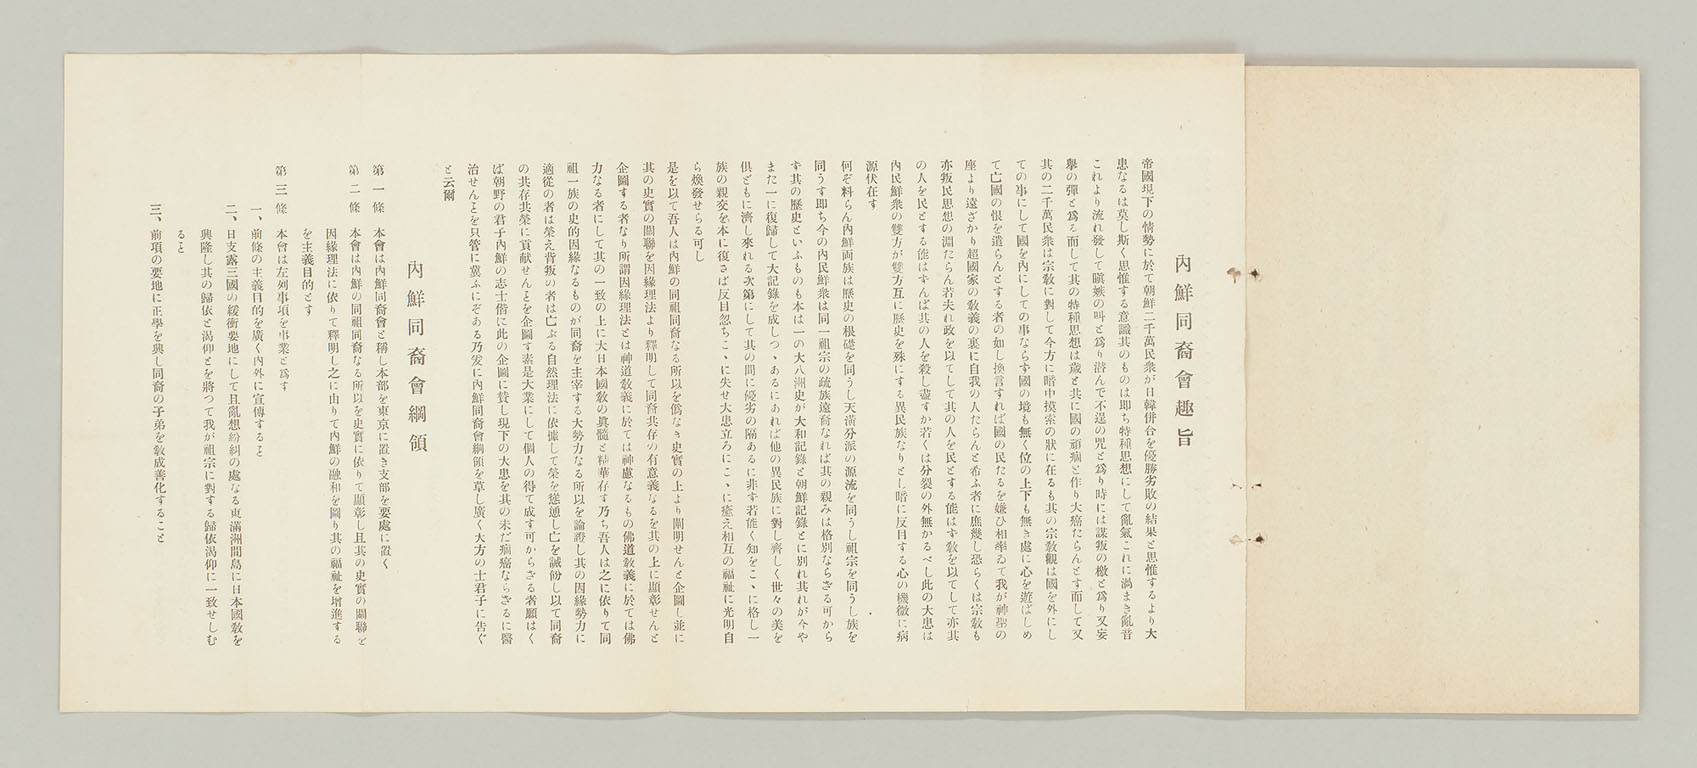 內鮮同裔會趣旨
帝國現下の情勢に於て朝鮮二千萬民衆が日韓併合を優勝劣敗の結果と思惟するより大
患なるは莫し斯く思惟する意識其のものは即ち特種思想にして亂氣これに渦まき亂音
これより流れ發して瞋嫉の叫と爲り潜んで不逞の咒と爲り時には謀叛の檄と爲り又妄
擧の彈と爲る而して其の特種思想は歳と共に國の頑痼と作り大癌たらんとす而して又
其の二千萬民衆は宗敎に對して今方に暗中摸索の狀に在るも其の宗敎觀は國を外にし
ての事にして國を內にしての事ならず國の境も無く位の上下も無き處に心を遊ばしめ
て亡國の恨を遣らんとする者の如し換言すれば國の民たるを嫌ひ相率ゐて我が神聖の
座より遠ざかり超國家の敎義の裏に自我の人たらんと希ふ者に庶幾し恐らくは宗敎も
亦叛民思想の淵たらん若夫れ政を以てして其の人を民とする能はず敎を以てして亦其
の人を民とする能はずんば其の人を殺し盡すか若くは分裂の外無かるべし此の大患は
內民鮮衆の雙方が雙方互に歷史を殊にする異民族なりとし暗に反目する心の機微に病
源伏在す
何ぞ料らん內鮮両族は歷史の根礎を同うし天潢分派の源流を同うし祖宗を同うし族を
同うす即ち今の內民鮮衆は同一祖宗の疏族遠裔なれば其の親みは格別ならざる可から
ず其の歷史といふものも本は一の大八洲史が大和記錄と朝鮮記錄とに別れ其れが今や
また一に復歸して大記錄を成しつゝあるにあれば他の異民族に對し齊しく世々の美を
俱どもに濟し來れる次第にして其の間に優劣の隔あるに非ず若能く知をこゝに格し一
族の親交を本に復さば反目忽ちこゝに失せ大患立ろにこゝに癒え相互の福祉に光明自
ら煥發せらる可し
是を以て吾人は內鮮の同祖同裔なる所以を僞なき史實の上より闡明せんと企圖し並に
其の史實の關聯を因緣理法より釋明して同裔共存の有意義なるを其の上に顯彰せんと
企圖する者なり所謂因緣理法とは神道敎義に於ては神慮なるもの佛道敎義に於ては佛
力なる者にして其の一致の上に大日本國敎の眞髓と精華存す乃ち吾人は之に依りて同
祖一族の史的因緣なるものが同裔を主宰する大勢力なる所以を論證し其の因緣勢力に
適從の者は榮え背叛の者は亡ぶる自然理法に依據して榮を慫通し亡を誡飭し以て同裔
の共存共榮に貢献せんとを企圖す素是大業にして個人の得て成す可からざる者願はく
ば朝野の君子內鮮の志士偕に此の企圖に賛し現下の大患を其の未だ痼癌ならざるに醫
治せんとを只管に冀ふにぞある乃玆に內鮮同裔會綱領を草し廣く大方の士君子に告ぐ
と云爾
內鮮同裔會綱領
第一條　本會は內鮮同裔會と稱し本部を東京に置き支部を要處に置く
第二條　本會は內鮮の同祖同裔なる所以を史實に依りて顯彰し且其の史實の關聯を
因緣理法に依りて釋明し之に由りて內鮮の融和を圖り其の福祉を增進する
を主義目的とす
第三條　本會は左列事項を事業と爲す
一、前條の主義目的を廣く內外に宣傳すると
二、日支露三國の緩衝要地にして且亂想紛糾の處なる東滿洲間島に日本國敎を
興隆し其の歸依と渴仰とを將つて我が祖宗に對する歸依渴仰に一致せしむ
ると
三、前項の要地に正學を興し同裔の子弟を敎成善化すること